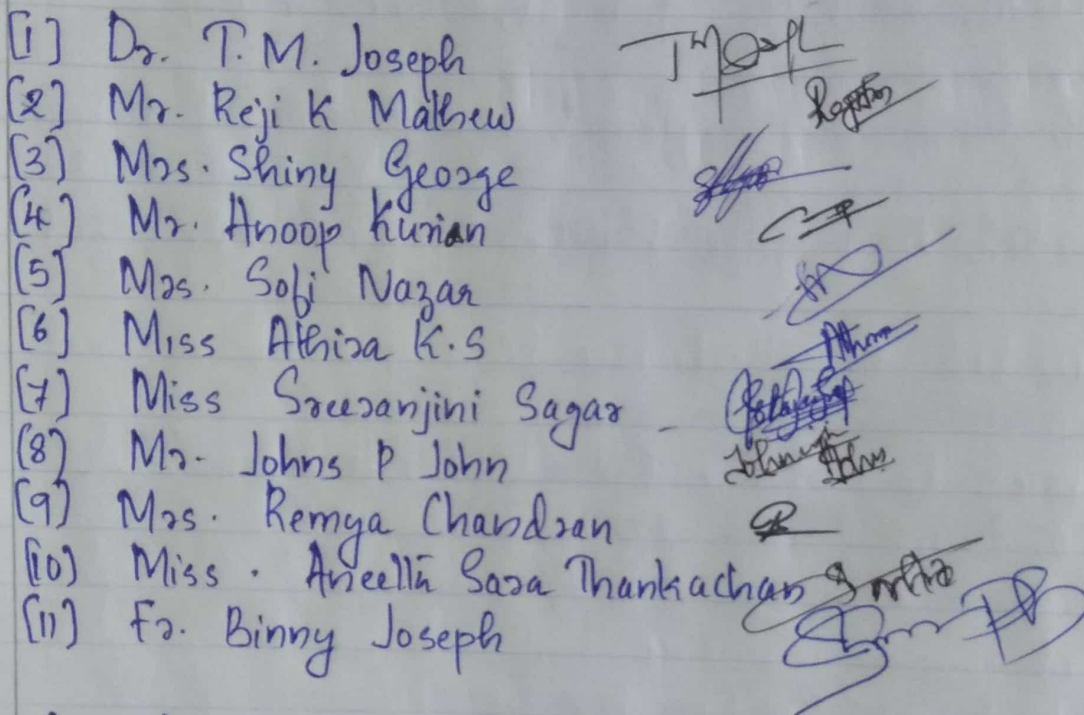 [1] Dr. T. M. Joseph
[2] Mr. Reji K Mathew
[3] Mrs. Shiny George
[4] Mr. Anoop Kurian
[5] Mrs. Sofi Nazar
[6] Miss Athira K.S
[7] Miss Sreeranjini Sagar -
[8] Mr. Johns P John
[9] Mrs. Remya Chandran
[10] Miss. Aneella Sara Thankachan
[11] Fr. Binny Joseph